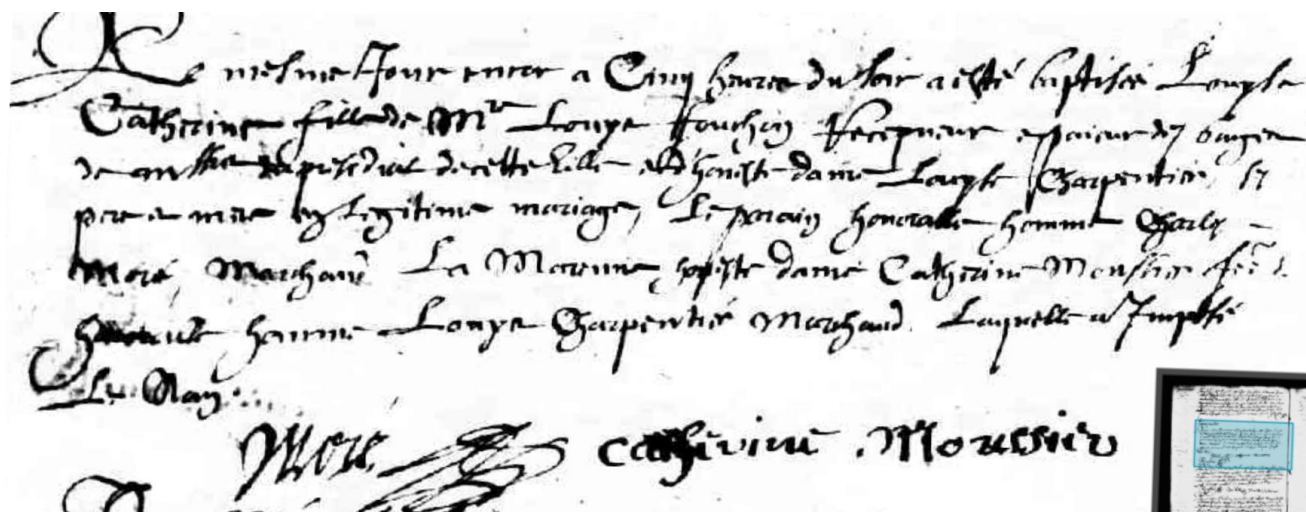 Le mesme Jour encor a Cinq heures du soir a esté baptisée Louyse
Catherine fille de Mr Louys Fouchon Recepveur et paieur des Gaiges
de du presidial de cette Ville et d'honeste dame Louyse Charpentier, ses
pere et mere en legitime mariage, Le parain honorable homme Charles
Moré, Marchand La Marenne honeste dame Catherine Moussier fem
honorable homme Louys Charpentié Marchand. Laquelle a Imposé
Le Nom.
Moré Catherine Moussier